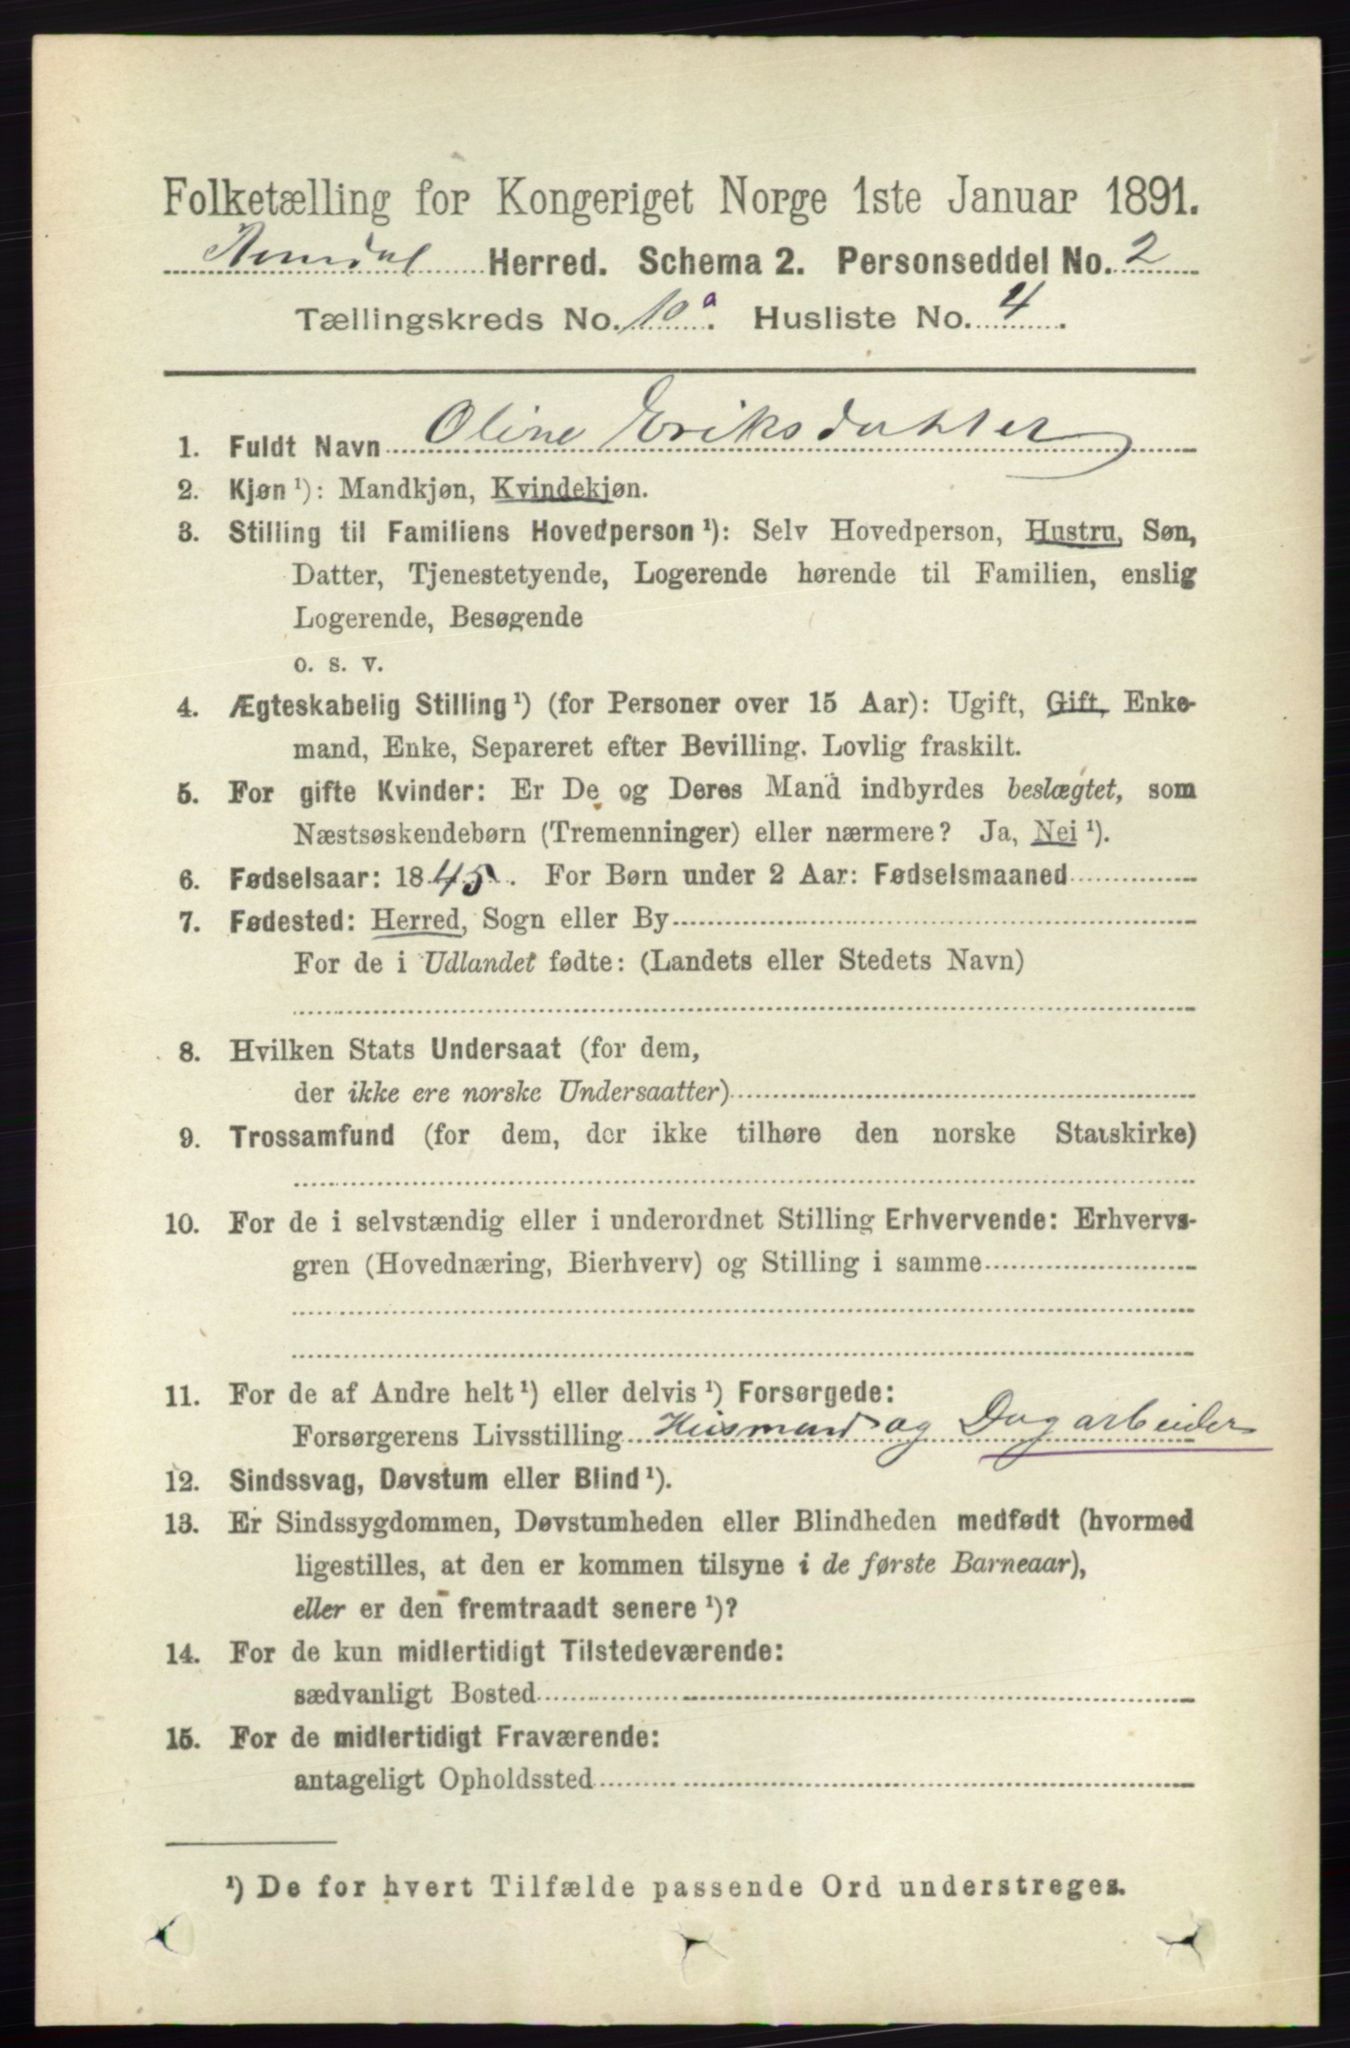 Folketælling for Kongeriget Norge 1ste Januar 1891.
Herred. Schema 2. Personseddel No. 2
Tællingskreds No. 10a. Husliste No. 4.
1. Fuldt Navn Oline Eriksdatter
2. Kjøn ¹): Mandkjøn, Kvindekjøn.
3. Stilling til Familiens Hovedperson ¹): Selv Hovedperson, Hustru, Søn,
Datter, Tjenestetyende, Logerende hørende til Familien, enslig
Logerende, Besøgende
o. s. v.
4. Ægteskabelig Stilling ¹) (for Personer over 15 Aar): Ugift, Gift, Enke-
mand, Enke, Separeret efter Bevilling. Lovlig fraskilt.
5. For gifte Kvinder: Er De og Deres Mand indbyrdes beslægtet, som
Næstsøskendebørn (Tremenninger) eller nærmere? Ja, Nei ¹).
6. Fødselsaar: 1845. For Børn under 2 Aar: Fødselsmaaned
7. Fødested: Herred, Sogn eller By
For de i Udlandet fødte: (Landets eller Stedets Navn)
8. Hvilken Stats Undersaat (for dem,
der ikke ere norske Undersaatter)
9. Trossamfund (for dem, der ikke tilhøre den norske Statskirke)
10. For de i selvstændig eller i underordnet Stilling Erhvervende: Erhvervs-
gren (Hovednæring, Bierhverv) og Stilling i samme
11. For de af Andre helt ¹) eller delvis ¹) Forsørgede:
Forsørgerens Livsstilling Husmand og Dagarbeider
12. Sindssvag, Døvstum eller Blind ¹).
13. Er Sindssygdommen, Døvstumheden eller Blindheden medfødt (hvormed
ligestilles, at den er kommen tilsyne i de første Barneaar),
eller er den fremtraadt senere ¹)?
14. For de kun midlertidigt Tilstedeværende:
sædvanligt Bosted
15. For de midlertidigt Fraværende:
antageligt Opholdssted
¹) De for hvert Tilfælde passende Ord understreges.